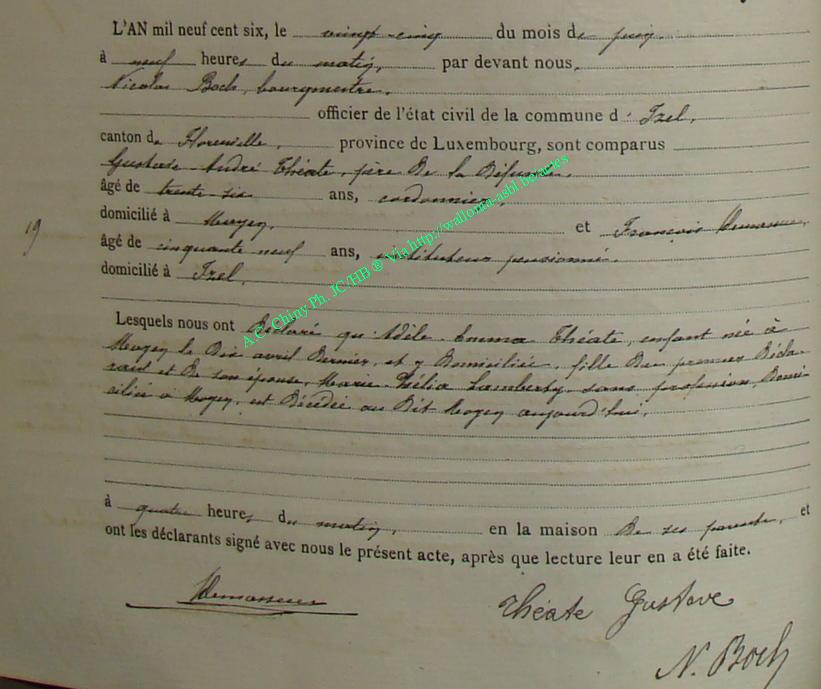 L'AN mil neuf cent six, le vingt-cinq du mois de juin.
à neuf heures du matin, par devant nous,
Nicolas Boch, bourgmestre.
officier de l'état civil de la commune d'Izel,
canton de Florenville, province de Luxembourg, sont comparus
Gustave-André Théate, père de la défunte,
âgé de trente-six ans, cordonnier,
domicilié à Moyen, et François
19
âgé de cinquante neuf ans, instituteur pensionné.
domicilié à Izel,
Lesquels nous ont déclaré qu'Adèle-Emma Théate, enfant née à
Moyen le dix avril dernier, et y domiciliée, fille du premier décla-
rant et de son épouse, Marie-Zélia Lamberty, sans profession, domi-
ciliée à Moyen, est décédée au dit Moyen aujourd'hui,
à quatre heures du matin, en la maison de ses parents, et
ont les déclarants signé avec nous le présent acte, après que lecture leur en a été faite.
Théate Gustave
N. Boch
A.C. Chiny Ph. JC/HB ® Via http://wallonia-asbl.be/actes